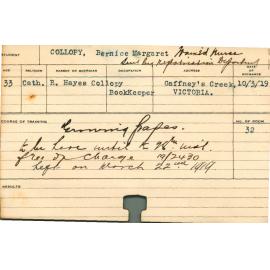 STUDENT COLLOPY, Bernice Margaret Trained Nurse
Sent by Repatriation Department
AGE RELIGION PARENT OR GUARDIAN OCCUPATION ADDRESS DATE OF ENTRANCE
33 Cath. R. Hayes Collopy Gaffney's Creek, 10/3/19
BookKeeper VICTORIA.
COURSE OF TRAINING NO. OF ROOM
Growing Grapes. 32
to be here until the 28th inst.
free of charge 19/2430
Left on March 22nd 1919.
RESULTS